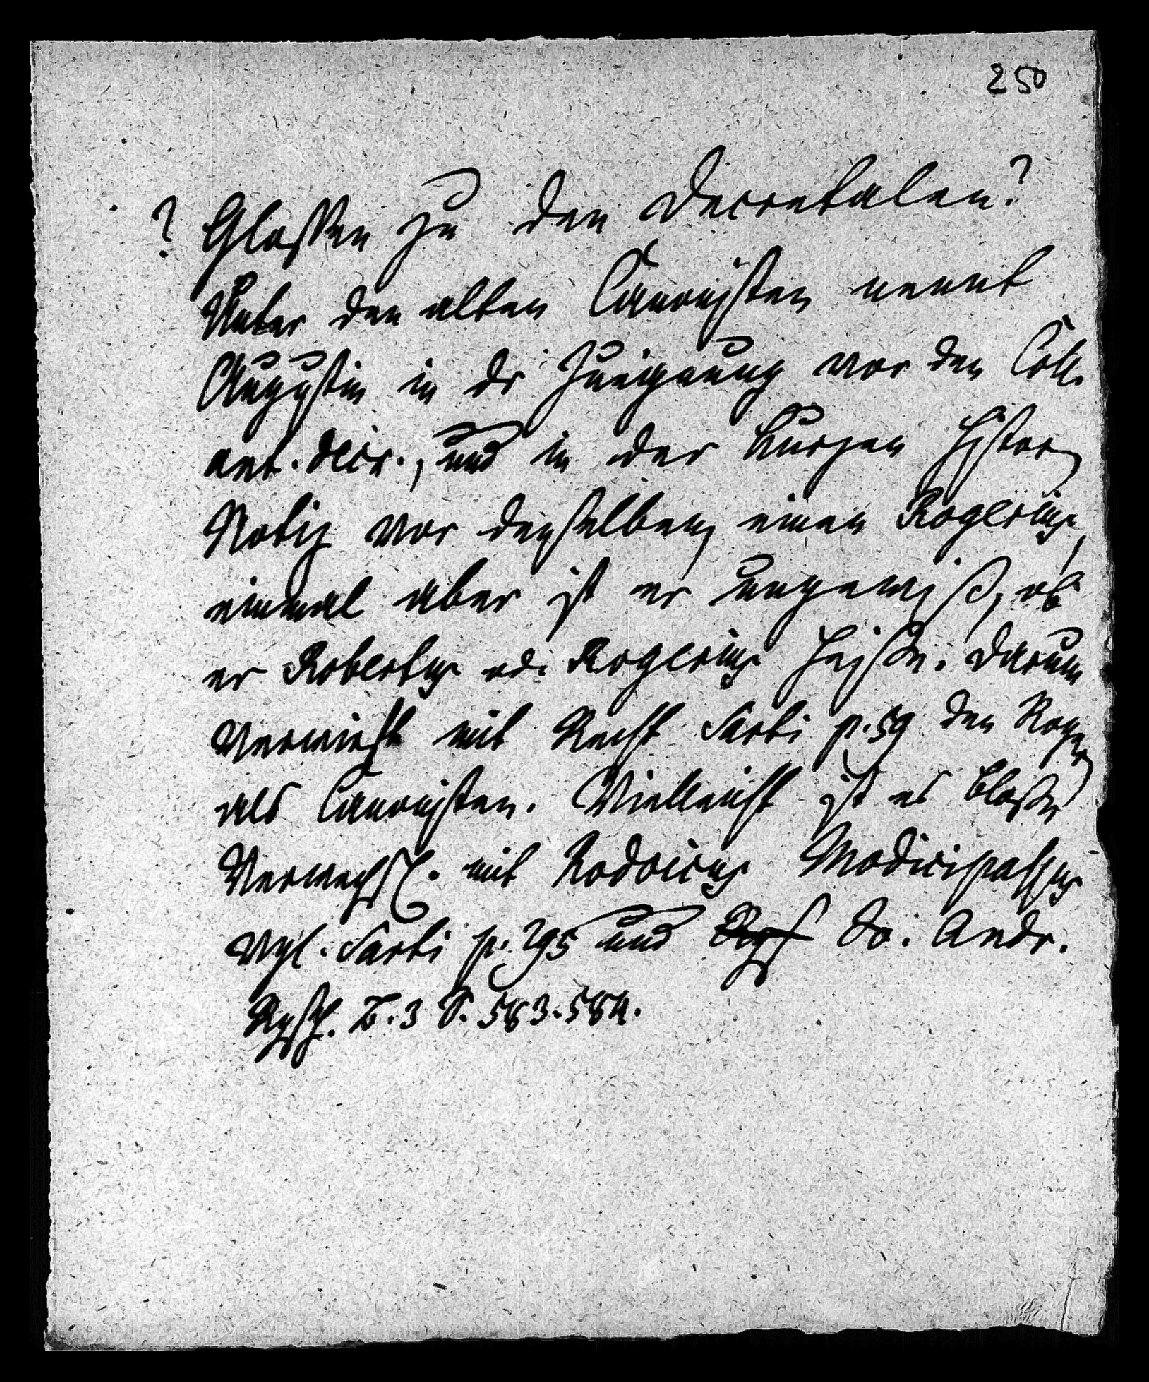 250
? Glossen zu den Decretalen?
Unter den alten Canonisten nennt
Augustin in dr Zueignung vor den Coll.
ant. decr., und in der kurzen histor
Notiz vor denselben, einen Rogerius,
einmal aber ist er ungewiß, ob
er Robertus od. Rogerius heiße. Darum
verwirft mit Recht Sarti p. 59 den Roger
als Canonisten. Vielleicht ist es bloße
Verwechsl. mit Rodoicus Modicipassus
vgl. Sarti p. 295 und Jo. Andr.
Rgsch. B. 3 S. 583. 584.